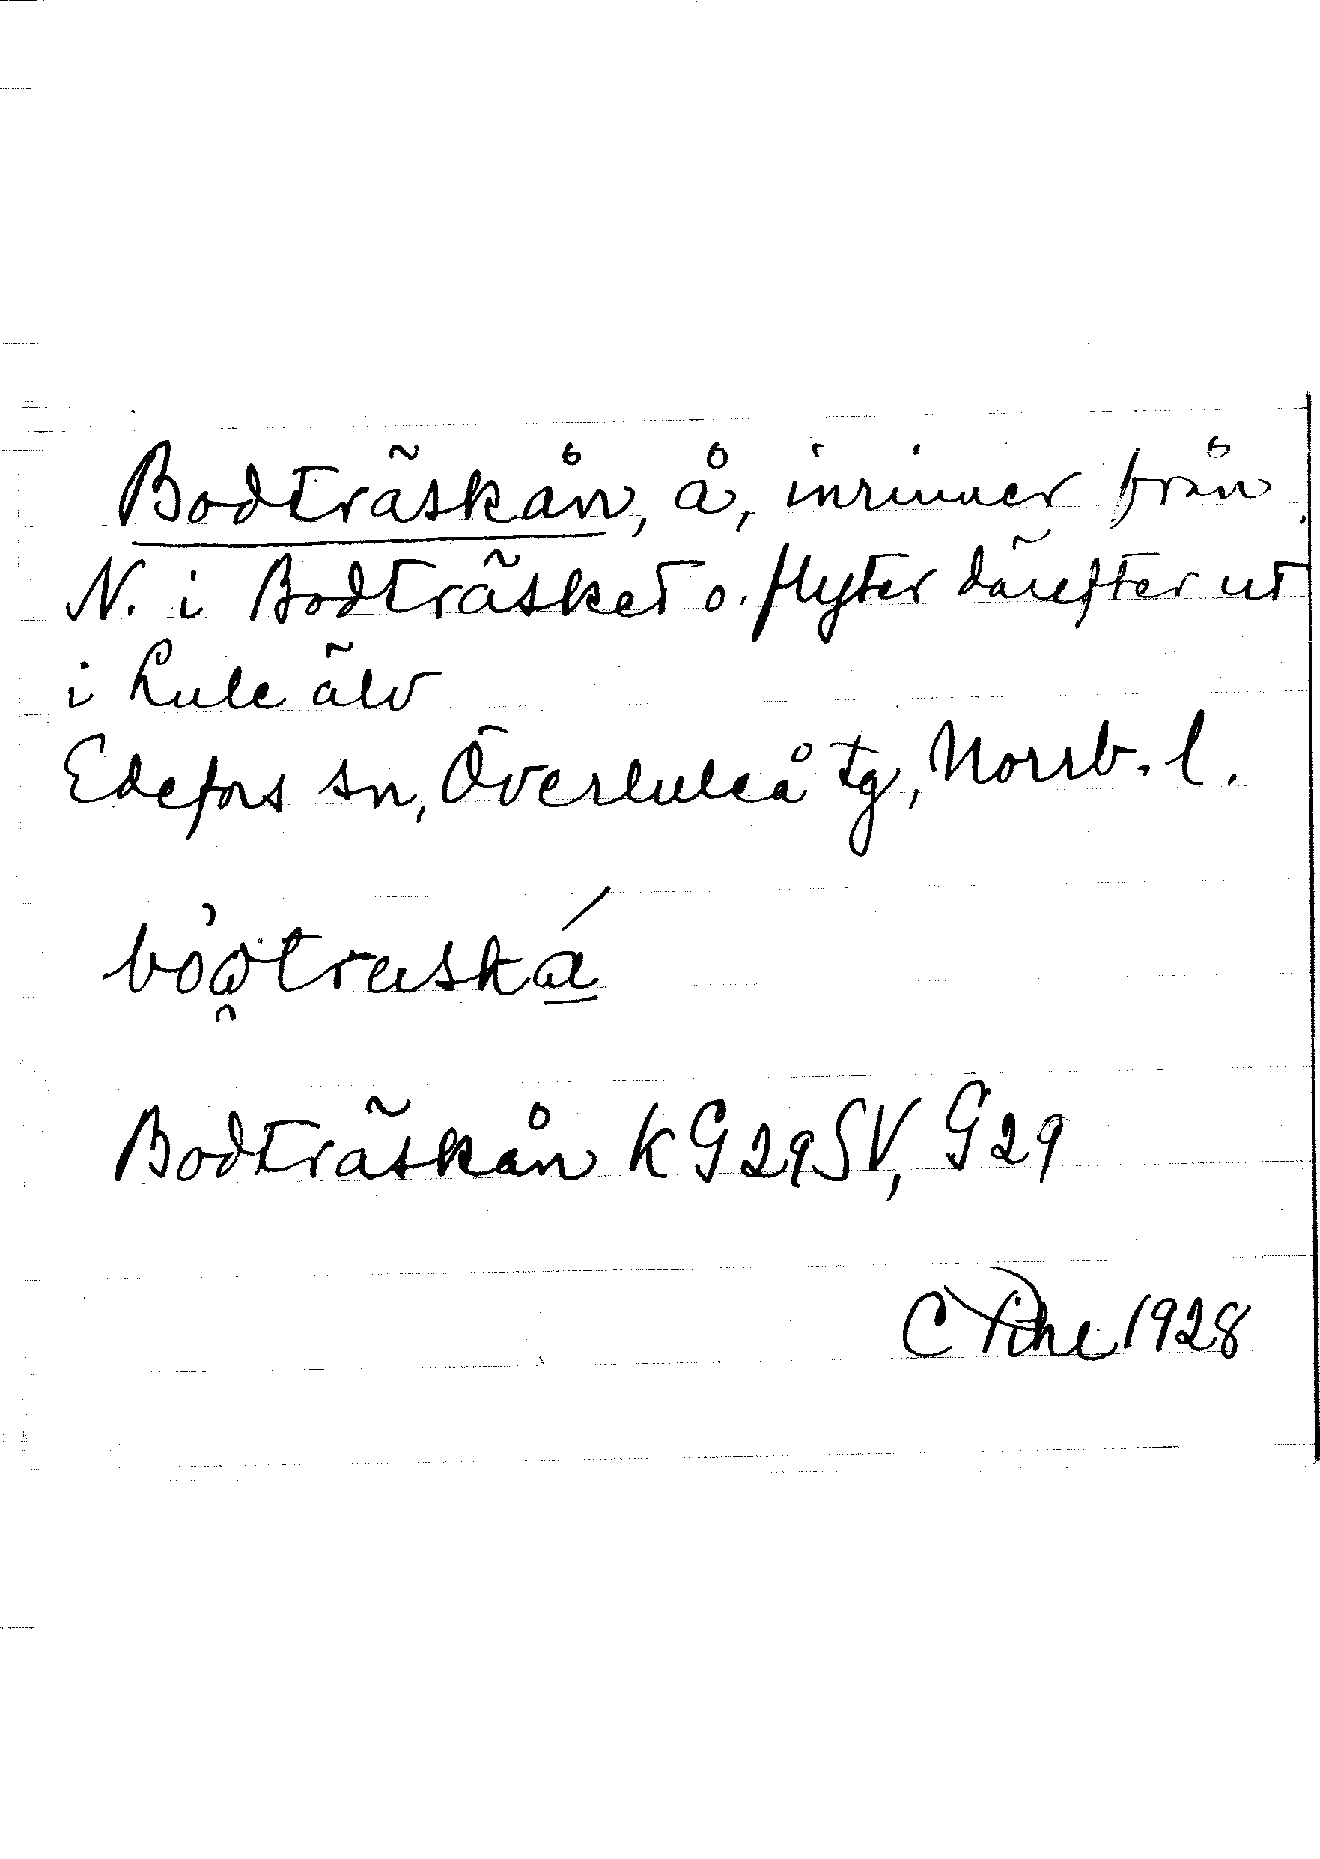 Bodträskån, å, inrinner från
N. i Bodträsket o. flyter därefter ut
i Lule älv
Edefors sn, Överluleå tg, Norrb. l.
Bodträskån K G29SV, G29
C Pihl 1928